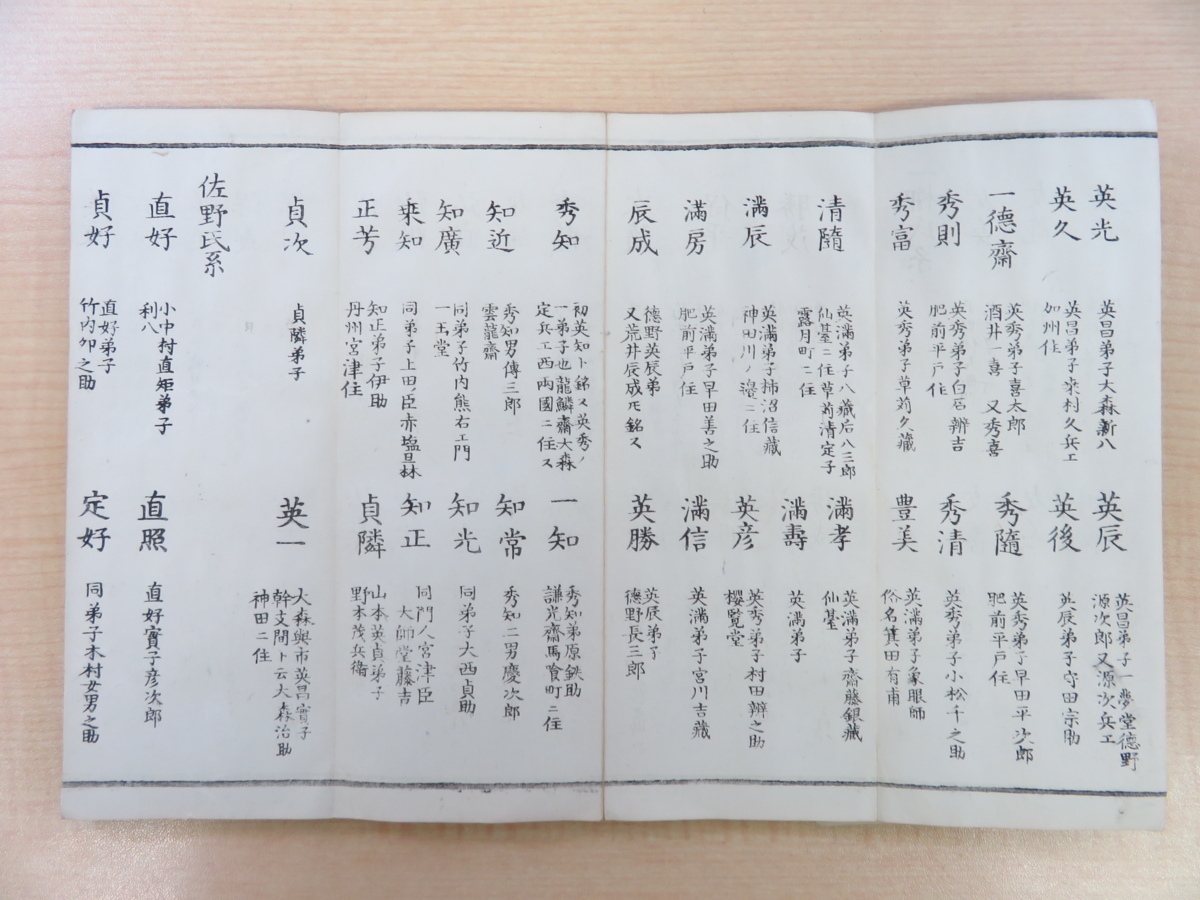 英光
英昌弟子大森新八
英久
英昌弟子染村久兵エ
加州住
一德齋
英秀弟子喜太郎
酒井一喜 又秀喜
秀則
英秀弟子白石辨吉
肥前平戸住
秀富
英秀弟子草苅久藏
英辰
英昌弟子一夢堂德野
源次郎又源次兵エ
英後
英辰弟子守田宗助
秀隨
英秀弟子早田平次郎
肥前平戸住
秀清
英秀弟子小松千之助
豊美
英満弟子象眼師
俗名箕田有甫
清隨
英満弟子八藏后八三郎
仙臺ニ住草苅清定子
露月町ニ住
満辰
英満弟子柿沼信藏
神田川ノ邉ニ住
満房
英満弟子早田善之助
肥前平戸住
辰成
德野英辰弟
又荒井辰成氏銘ス
満孝
英満弟子齋藤銀藏
仙臺
満壽
英満弟子
英彦
英秀弟子村田辨之助
櫻覧堂
満信
英満弟子宮川吉藏
英勝
英辰弟子
德野長三郎
秀知
初英知ト銘ス英秀ノ
一弟子也龍鱗齋大森
定兵エ西両國ニ住ス
知近
秀知男傳三郎
雲龍齋
知廣
同弟子竹内熊右エ門
一玉堂
乗知
同弟子上田ノ臣赤塩旦林
正芳
知正弟子伊助
丹州宮津住
一知
秀知弟原鉄助
謙光齋馬喰町ニ住
知常
秀知二男慶次郎
知光
同弟子大西貞助
知正
同門人宮津臣
大師堂藤吉
貞隣
山本英貞弟子
野本茂兵衛
貞次
貞隣弟子
英一
大森與市英昌實子
幹支間ト云大森治助
神田ニ住
佐野氏系
直好
小中村直矩弟子
利八
貞好
直好弟子
竹内卯之助
直照
直好實子彦次郎
定好
同弟子木村女男之助